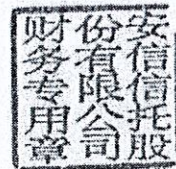 安信信托股
份有限公司
财务专用章